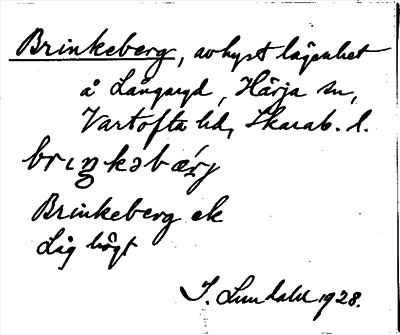 Brinkeberg, avhyst lägenhet
å Långaryd, Härja sn,
Vartofta hd, Skarab. l.
briŋkəbærj
Brinkeberg ek
Låg högt
I. Lundahl 1928.